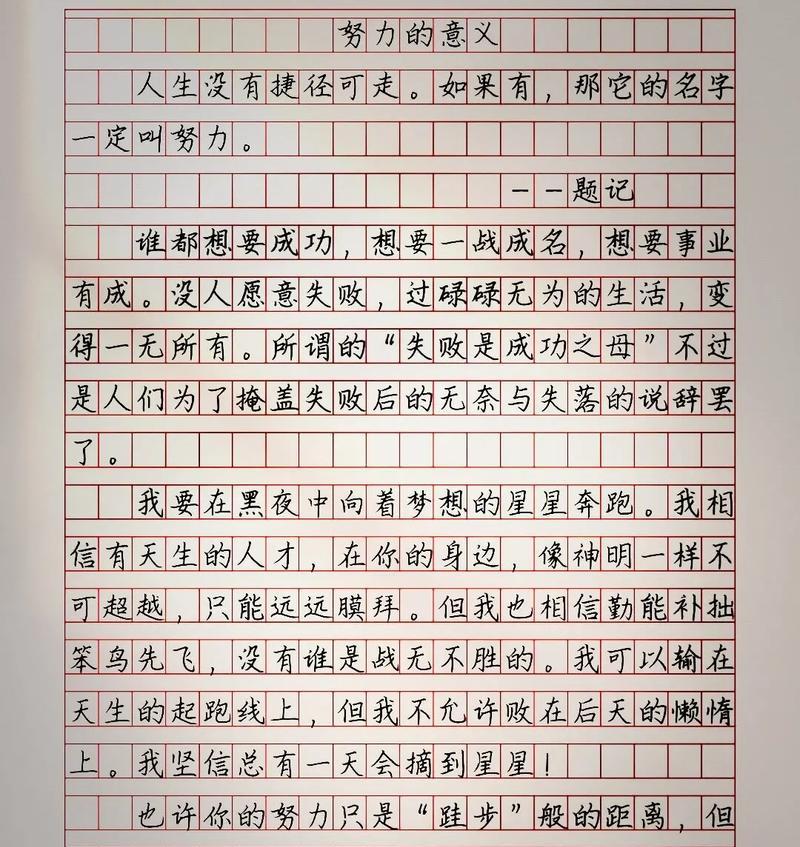 努力的意义
人生没有捷径可走。如果有，那它的名字
一定叫努力。
——题记
谁都想要成功，想要一战成名，想要事业
有成。没人愿意失败，过碌碌无为的生活，变
得一无所有。所谓的“失败是成功之母”不过
是人们为了掩盖失败后的无奈与失落的说辞罢
了。
我要在黑夜中向着梦想的星星奔跑。我相
信有天生的人才，在你的身边，像神明一样不
可超越，只能远远膜拜。但我也相信勤能补拙
笨鸟先飞，没有谁是战无不胜的。我可以输在
天生的起跑线上，但我不允许败在后天的懒惰
上。我坚信总有一天会摘到星星！
也许你的努力只是“跬步”般的距离，但